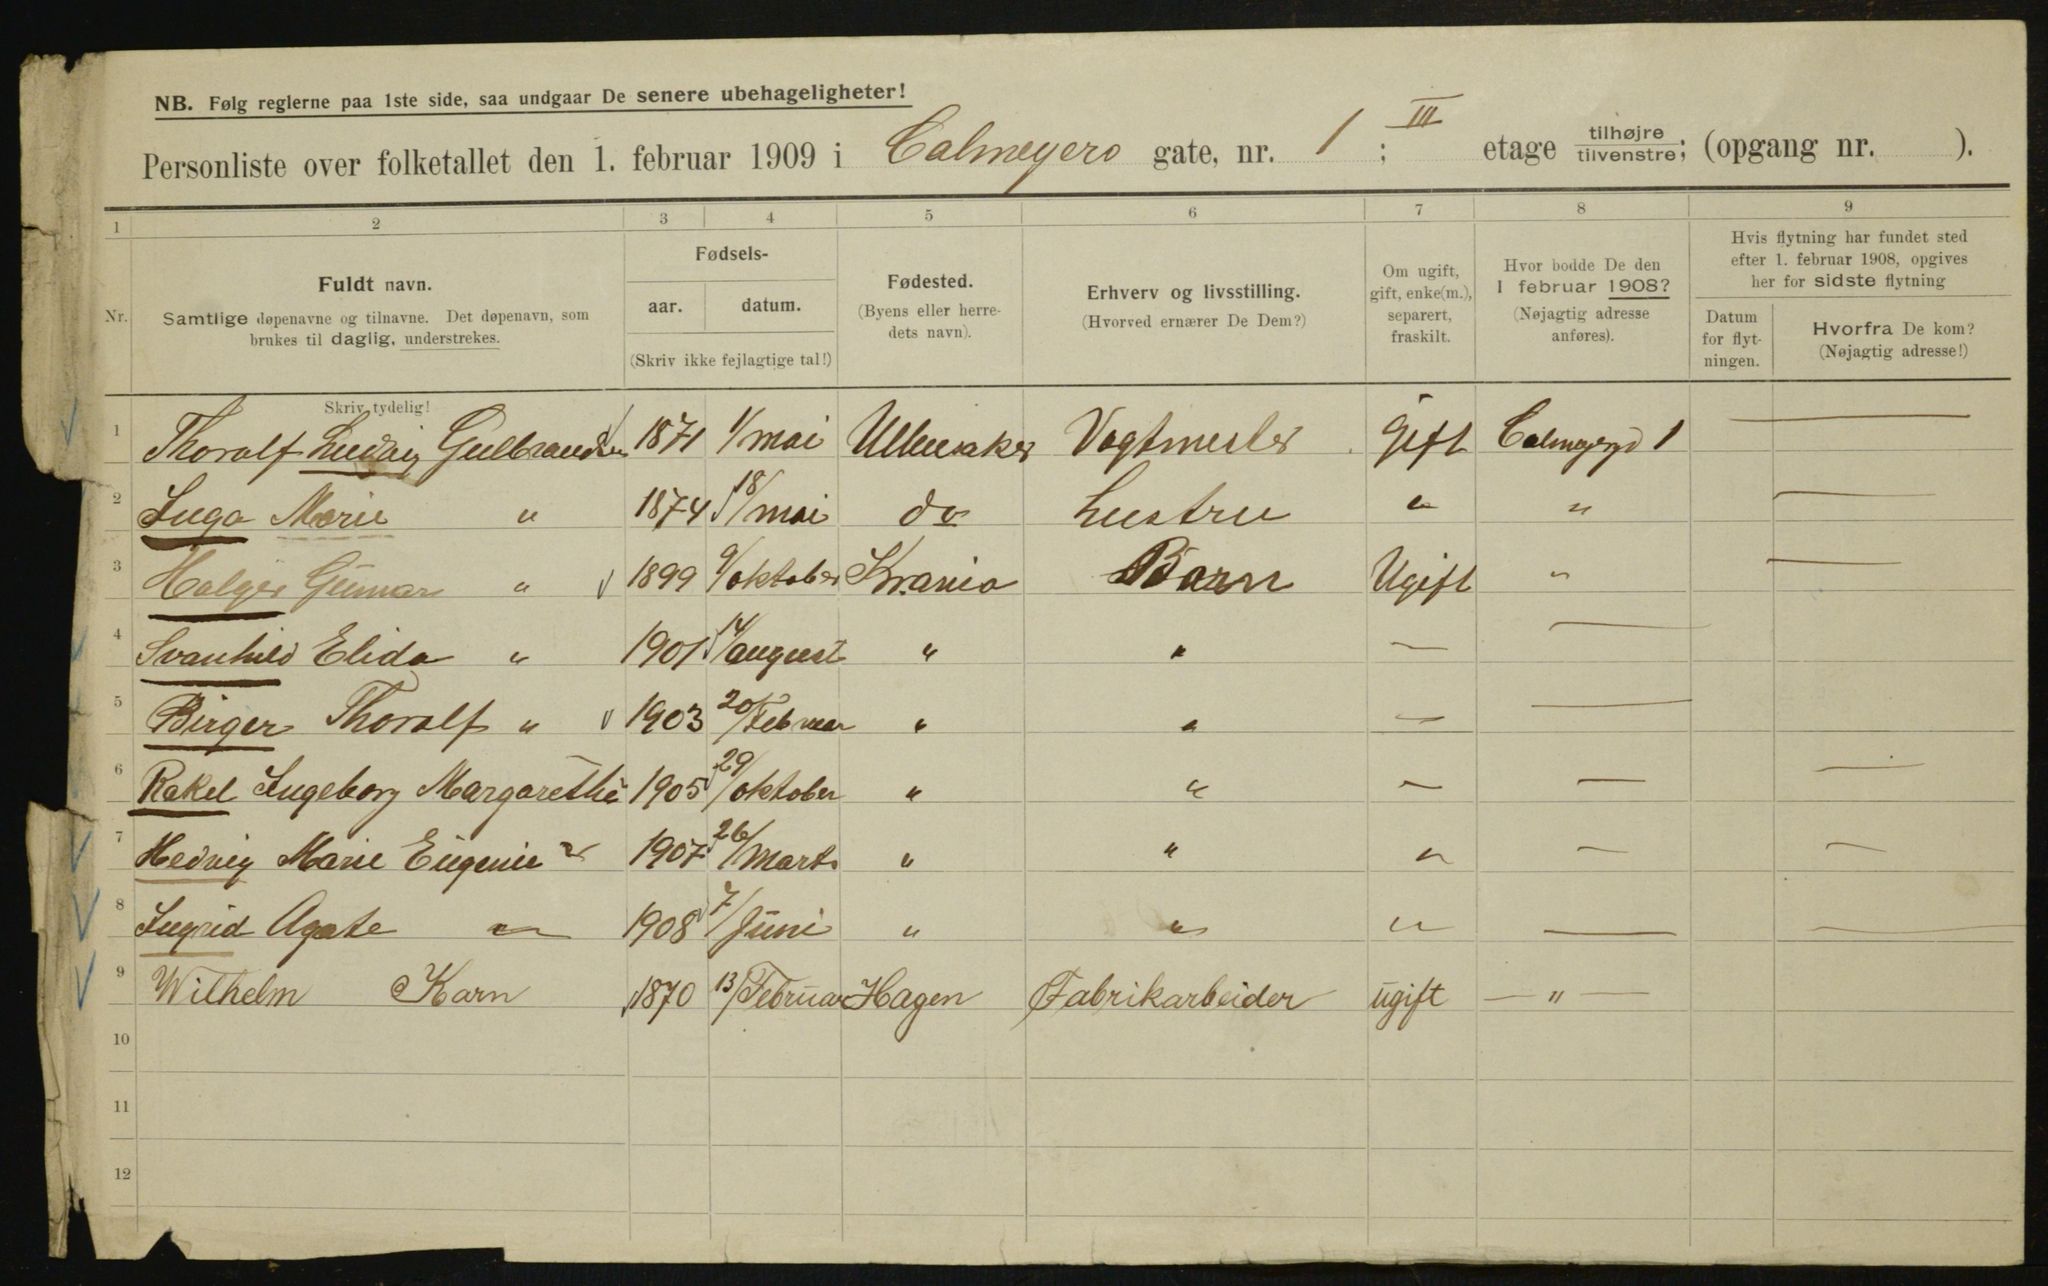 NB. Følg reglerne paa 1ste side, saa undgaar De senere ubehageligheter!
Personliste over folketallet den 1. februar 1909 i Calmeyers gate, nr. 1 ; III etage tilhøjre / tilvenstre; (opgang nr. ).
1 2 3 4 5 6 7 8 9
Nr.
Fuldt navn.
Samtlige døpenavne og tilnavne. Det døpenavn, som
brukes til daglig, understrekes.
Skriv tydelig!
Fødsels-
aar. datum.
(Skriv ikke fejlagtige tal!)
Fødested.
(Byens eller herre-
dets navn).
Erhverv og livsstilling.
(Hvorved ernærer De Dem?)
Om ugift,
gift, enke(m.),
separert,
fraskilt.
Hvor bodde De den
1 februar 1908?
(Nøjagtig adresse
anføres).
Hvis flytning har fundet sted
efter 1. februar 1908, opgives
her for sidste flytning
Datum
for flyt-
ningen.
Hvorfra De kom?
(Nøjagtig adresse!)
1 Thoralf Ludvig Gulbrandsen 1871 1/mai Ullensaker Vogtmester Gift 1 —
2 Inga Marie " 1874 18/mai do Hustru " " —
3 Holger Gunnar " 1899 9/oktober Krania Barn Ugift " —
4 Svanhild Elida " 1901 14/august " " — —
5 Birger Thoralf " 1903 20/Februar " " — —
6 Rakel Ingeborg Margarethe 1905 29/oktober " " — — —
7 Hedvig Marie Eugenie " 1907 26/Marts " " " — —
8 Ingrid Agate " 1908 7/Juni " " " — —
9 Wilhelm Karn 1870 13/Februar Hagen Fabrikarbeider ugift — " —
10
11
12